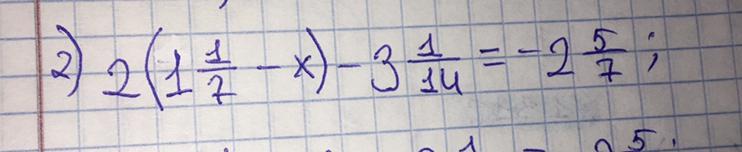 2) 2(1 1/7 - x) - 3 1/14 = -2 5/7;